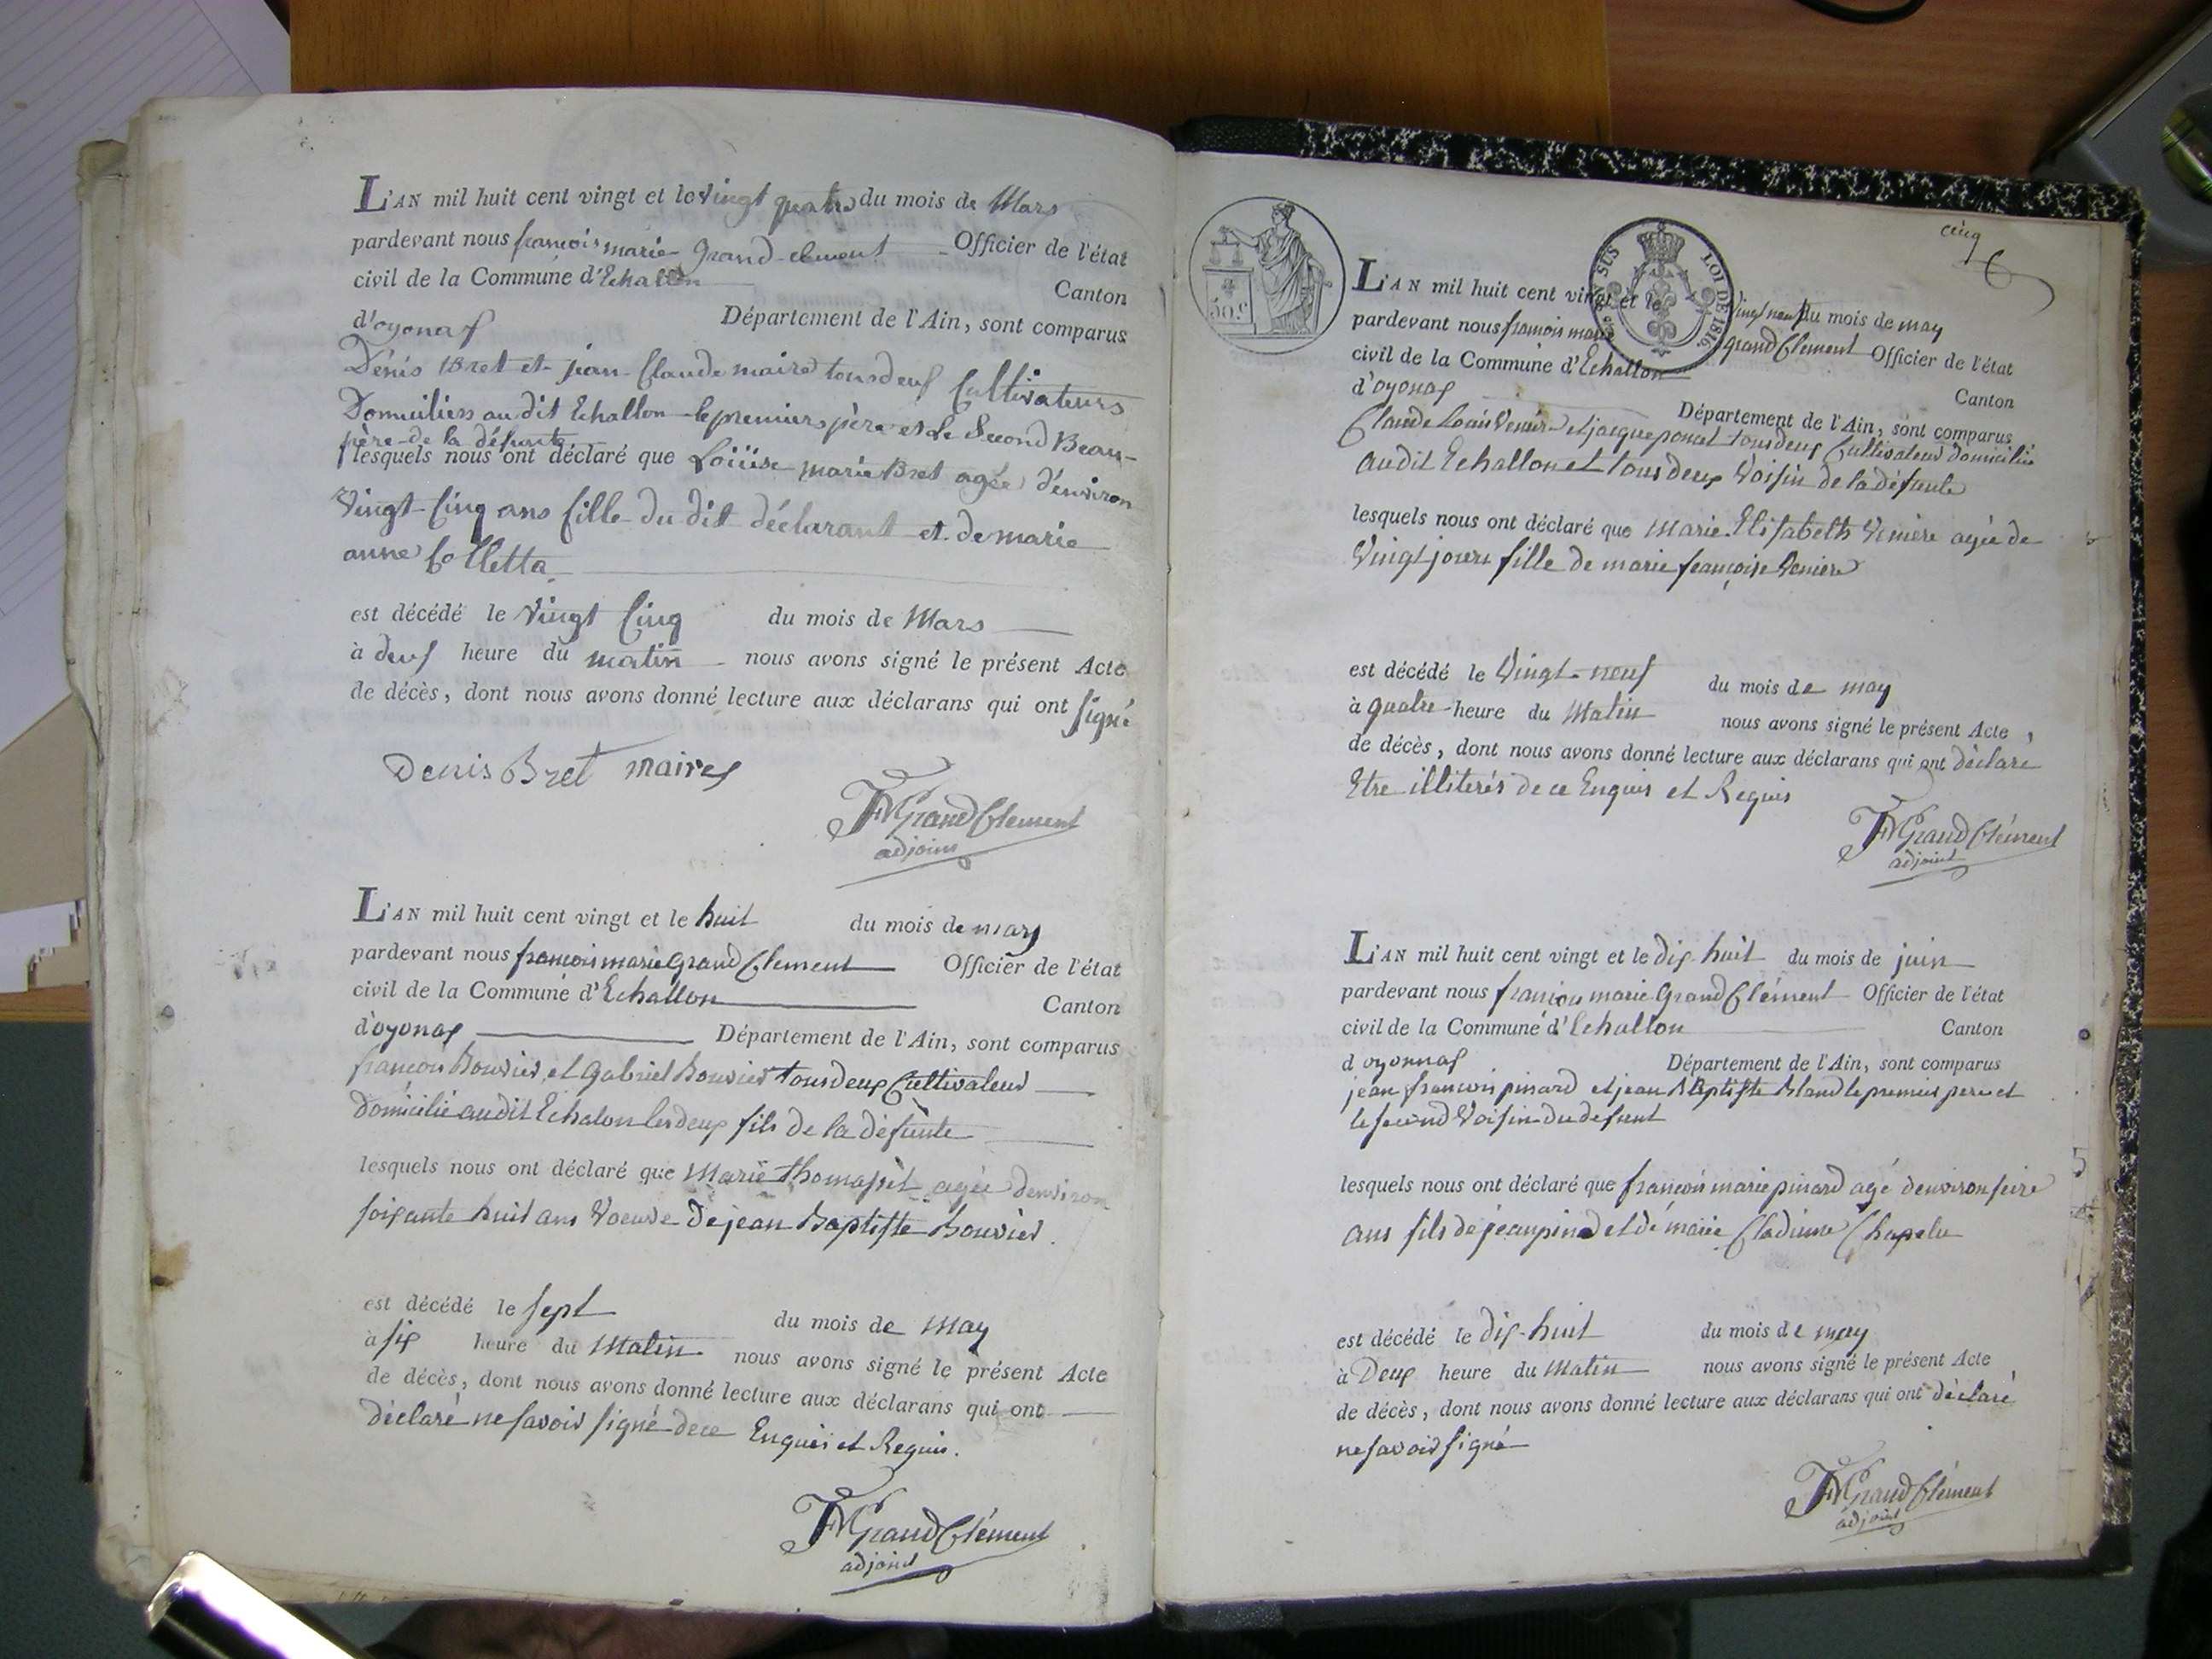 L'AN mil huit cent vingt et le vingt quatre du mois de Mars
pardevant nous francois marie Grand-clement Officier de l'état
civil de la Commune d'Echallon Canton
d'oyonax Département de l'Ain, sont comparus
Denis Bret et jean Claude maire tous deux Cultivateurs
Domiciliers au dit Echallon le premiers père et le Second Beau-
père de la défunte
lesquels nous ont déclaré que Loüise marie Bret agée d'environ
Vingt Cinq ans fille du dit déclarant et de marie
anne Colletta
est décédé le Vingt Cinq du mois de Mars
à deux heure du matin nous avons signé le présent Acte
de décès, dont nous avons donné lecture aux déclarans qui ont signé
Denis Bret maire
FMGrandClement
adjoint
L'AN mil huit cent vingt et le huit du mois de may
pardevant nous francois marie Grand Clement Officier de l'état
civil de la Commune d'Echallon Canton
d'oyonax Département de l'Ain, sont comparus
francois Bouvier et Gabriel Bouvier tous deux Cultivateur
Domicilié audit Echalon les deux fils de la défunte
lesquels nous ont déclaré que Marie thomasset agée denviron
soixante huit ans Voeuve De jean Baptiste Bouvier.
est décédé le sept du mois de May
à six heure du Matin nous avons signé le présent Acte
de décès, dont nous avons donné lecture aux déclarans qui ont
déclaré ne savoir signé de ce Enquis et Requis.
FMGrandClément
adjoint
cinq
50.c
EN SUS LOI DE 1816
L'AN mil huit cent vingt et le vingt neuf du mois de may
pardevant nous francois marie grand Clement Officier de l'état
civil de la Commune d'Echallon Canton
d'oyonax Département de l'Ain, sont comparus
Claude Louis et jacque poncet tous deux Cultivateur domicilié
audit Echallon et tous deux Voisin de la défunte
lesquels nous ont déclaré que Marie Elisabeth Veniere agée de
Vingt jours fille de marie françoise Veniere
est décédé le Vingt-neuf du mois de may
à quatre heure du Matin nous avons signé le présent Acte,
de décès, dont nous avons donné lecture aux déclarans qui ont déclaré
Etre illiterés de ce Enquis et Requis
FMGrandClément
adjoint
L'AN mil huit cent vingt et le dix-huit du mois de juin
pardevant nous francois marie Grand Clément Officier de l'état
civil de la Commune d'Echallon Canton
d oyonnax Département de l'Ain, sont comparus
jean francois pinard et jean Baptiste le premier pere et
le second Voisin du defunt
lesquels nous ont déclaré que francois marie pinard agé denviron seire
ans fils de jean et de marie Cladinne Chapelu
est décédé le dix-huit du mois de may
à Deux heure du Matin nous avons signé le présent Acte
de décès, dont nous avons donné lecture aux déclarans qui ont déclaré
ne savoir signé
FMGrandClément
adjoint